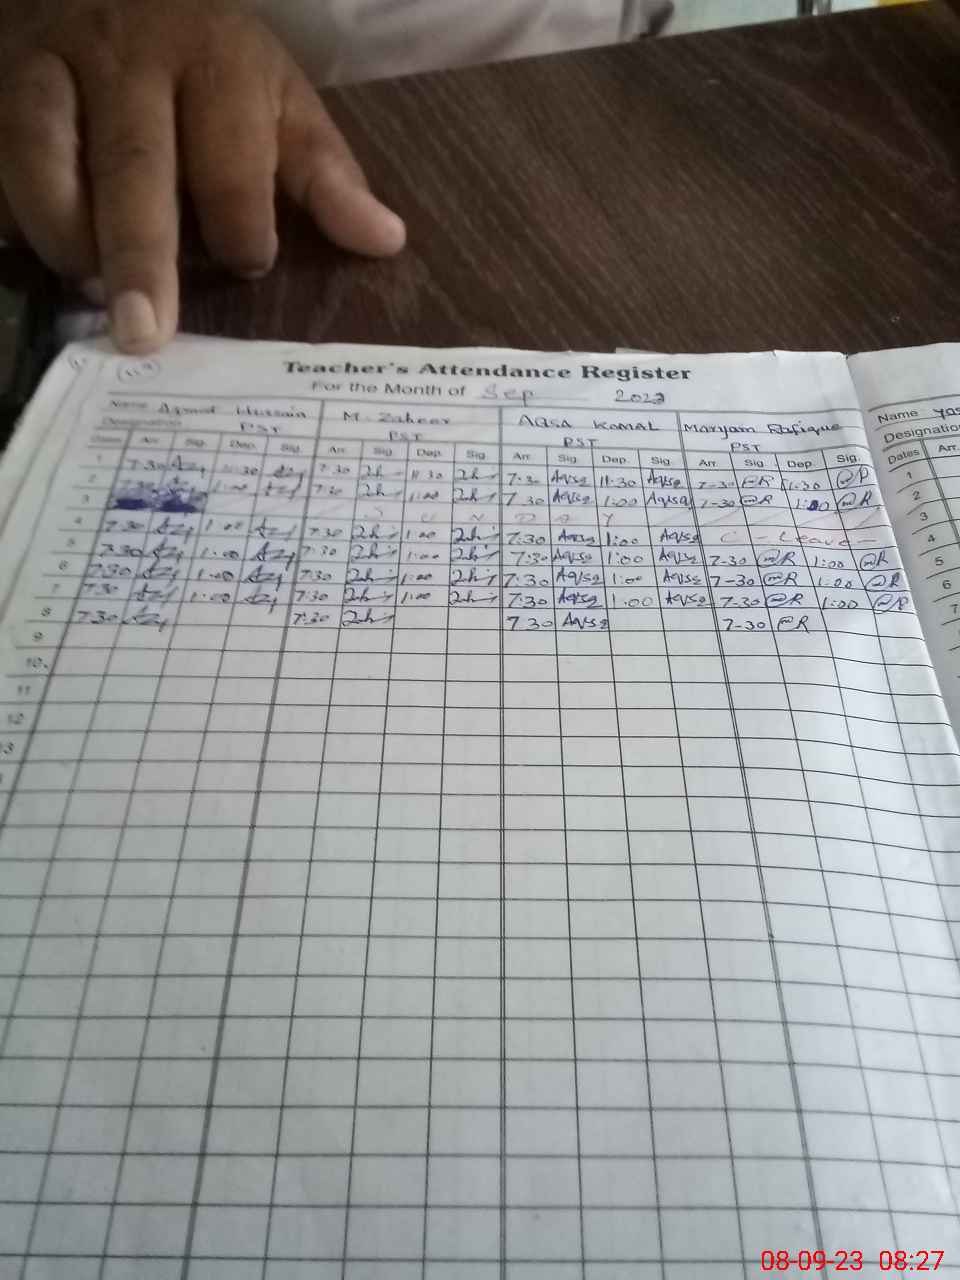 Teacher's Attendance Register
For the Month of Sep 2023
Name Hussain M. Zaheer AQSA KOMAL Maryam Rafique Name
Designation PST PST PST PST Designation
Dates Arr. Sig. Dep. Sig. Arr. Sig. Dep. Sig. Arr. Sig. Dep. Sig. Arr. Sig. Dep. Sig. Dates Arr.
1 7:30 11:30 7:30 11:30 7:30 Aqsa 11:30 Aqsa 7-30 11:30 1
2 7:30 1:00 7:30 1:00 7:30 Aqsa 1:00 Aqsa 7-30 1:00 2
3 S U N D A Y 3
4 7:30 1:00 7:30 1:00 7:30 Aqsa 1:00 Aqsa C - Leave - 4
5 7:30 1:00 7:30 1:00 7:30 Aqsa 1:00 Aqsa 7-30 @R 1:00 @R 5
6 7:30 1:00 7:30 1:00 7:30 Aqsa 1:00 Aqsa 7-30 @R 1:00 @R 6
7 7:30 1:00 7:30 1:00 7:30 Aqsa 1:00 Aqsa 7-30 @R 1:00 @R 7
8 7:30 7:30 7:30 Aqsa 7-30 @R
9
10
11
12
13
08-09-23 08:27